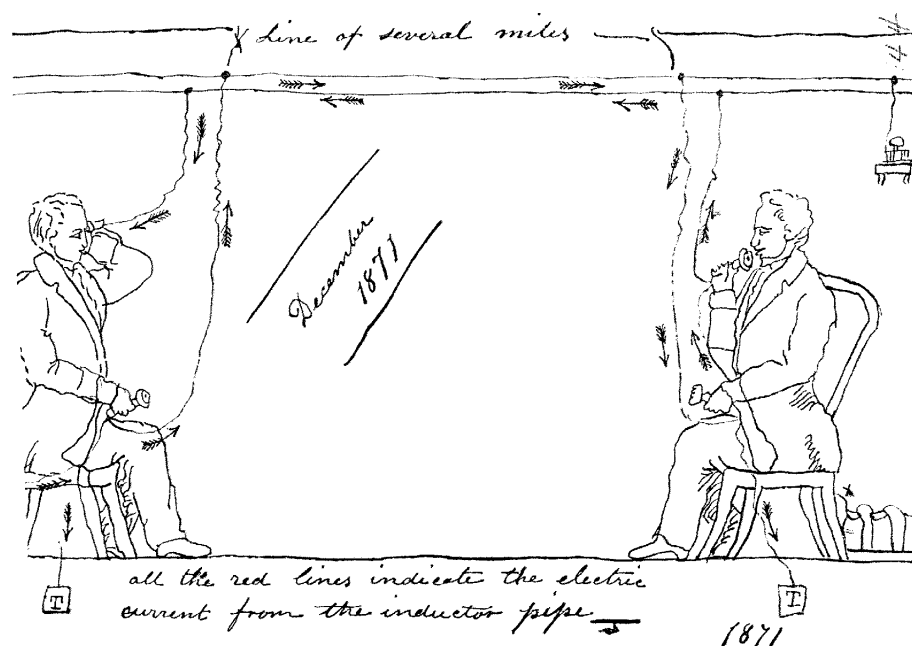 Line of several miles
December
1871
T
all the red lines indicate the electric
current from the inductor pipe
T
1871